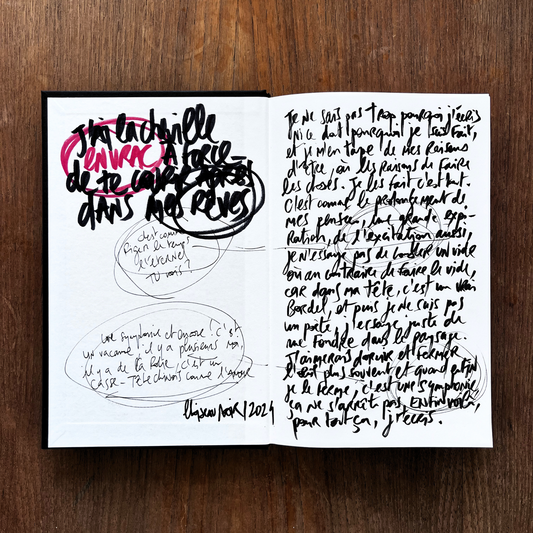 J'ai la cheville
EN VRAC À force
de te courir APRÈS
dans mes Rêves
c'est comme
figer le temps
l'éternel
TU vois?
une symphonie et encore! c'est
un vacarme il y a plusieurs
il y a de la folie, c'est un
CASSE-Tête chinois comme l'Amour
2024
Je ne sais pas trop pourquoi j'écris
ni ce dont pourquoi je suis fait,
et je m'en tape de mes Raisons
d'être, où les Raisons de faire
les choses. Je les fait c'est tout.
C'est comme le prolongement de
mes pensées, une grande expi-
ration, de l'excitation aussi,
je n'essaye pas de combler un vide
où au contraire de faire le vide,
car dans ma tête, c'est un vrai
Bordel, et puis je ne suis pas
un poète, j'essaye juste de
me fondre dans le paysage.
J'aimerais dormir et fermer
l'œil plus souvent et quand enfin
je le ferme, c'est une symphonie
ça ne s'arrête pas. Enfin voilà,
pour tout ça, j'écris.